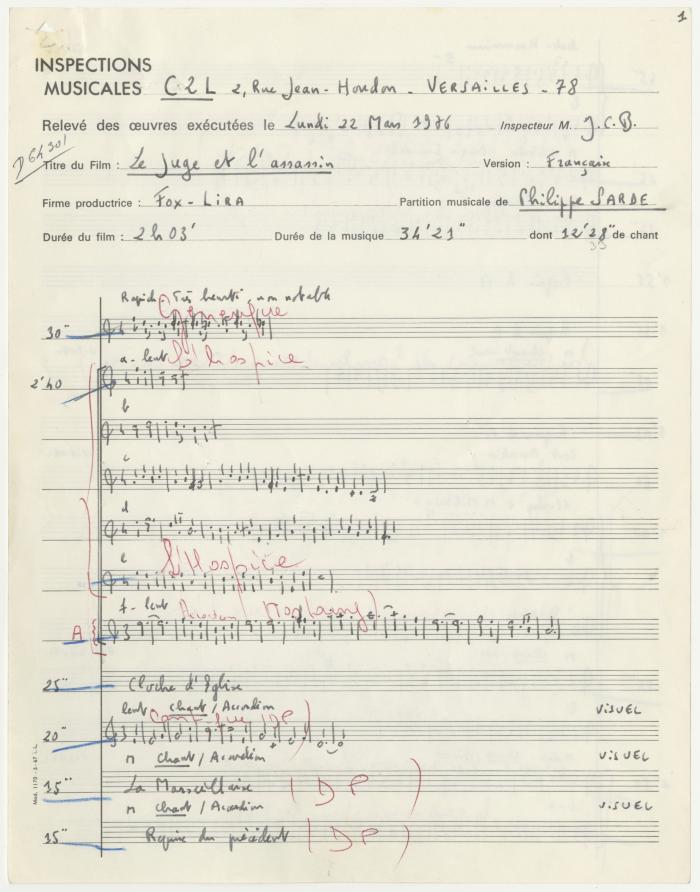 1
INSPECTIONS
MUSICALES C2L 2, Rue Jean-Houdon - VERSAILLES - 78
Relevé des œuvres exécutées le Lundi 22 Mars 1976 Inspecteur M. J.C.B.
26H301
Titre du Film : Le juge et l'assassin Version : Français
Firme productrice : Fox-LIRA Partition musicale de Philippe SARDE
Durée du film : 2h03' Durée de la musique 34'21" dont 12'28" de chant
35
Rapide Très heurté, non notable
Générique
30"
a - lent L'hospice
2'40
b
c
d
e L'Hospice
f - lent Accordéon
A
25" Cloche d'Eglise
lent chant / Accordéon VISUEL
(DP)
20"
n chant / Accordéon VISUEL
15" La Marseillaise (DP)
n chant / Accordéon VISUEL
15" Reprise du précédent (DP)